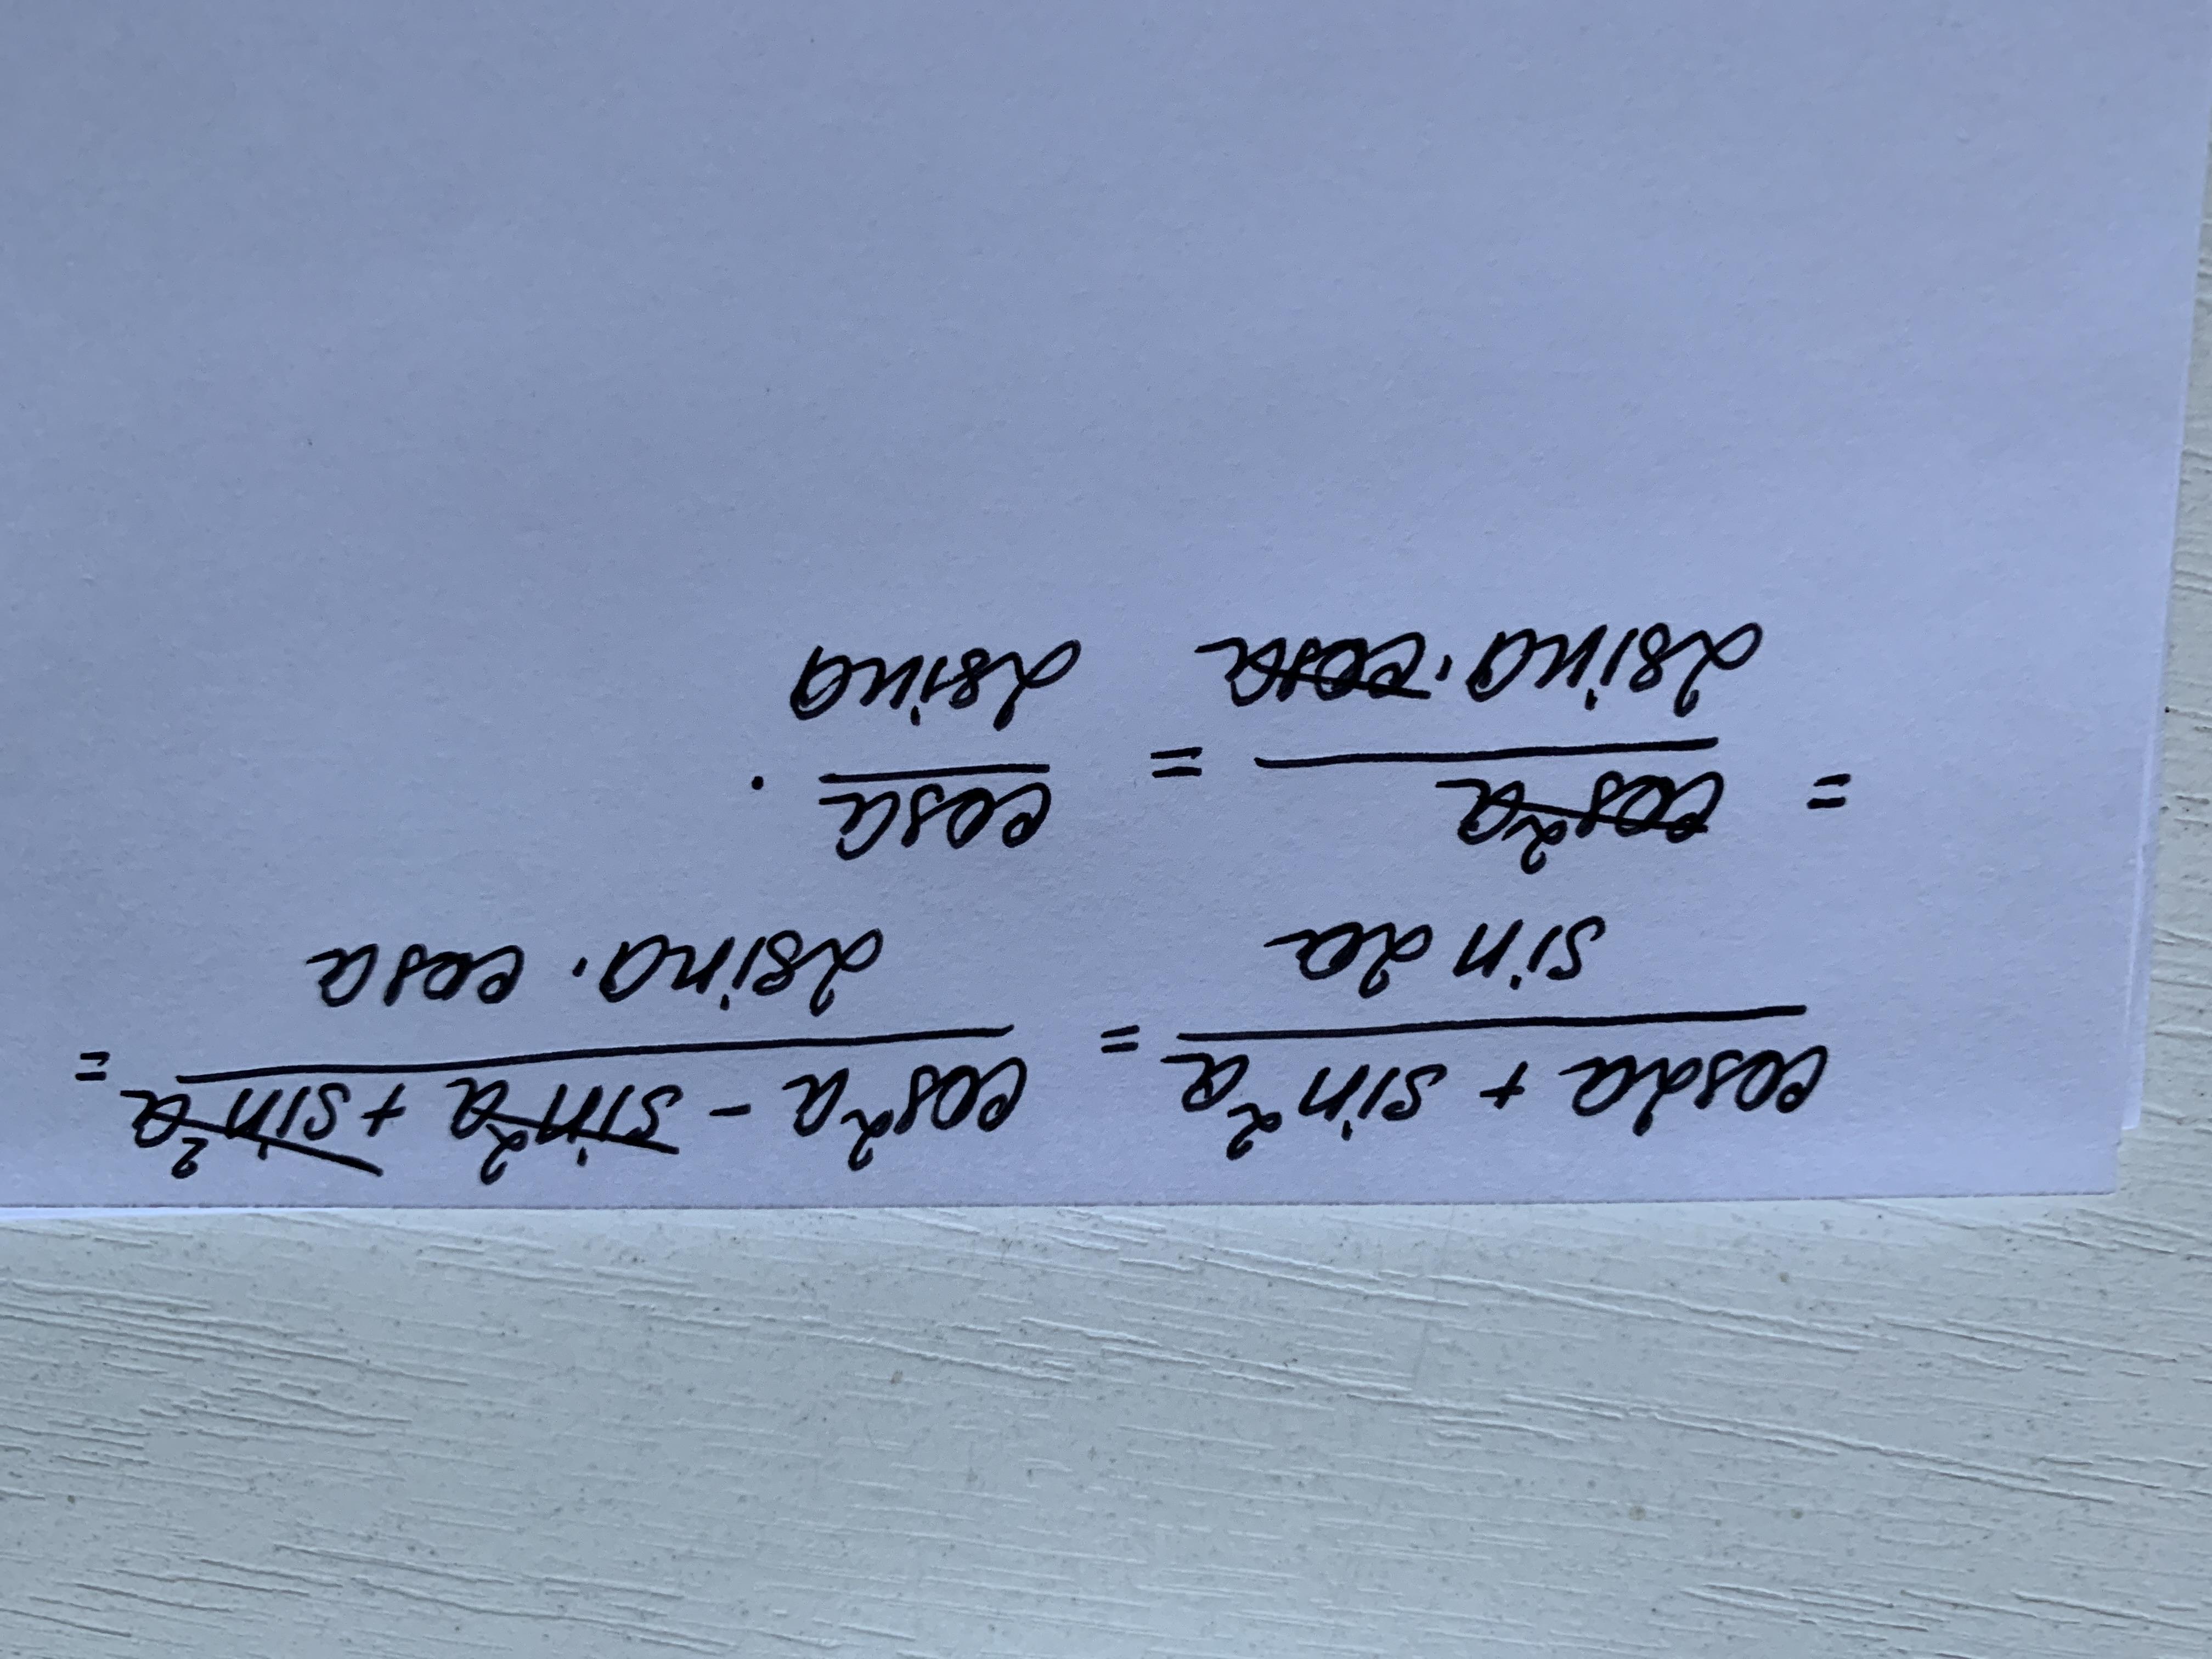 (cos2a + sin²a)/(sin 2a) = (cos²a - sin²a + sin²a)/(2sina · cosa) =
= (cos²a)/(2sina · cosa) = (cosa)/(2sina) .